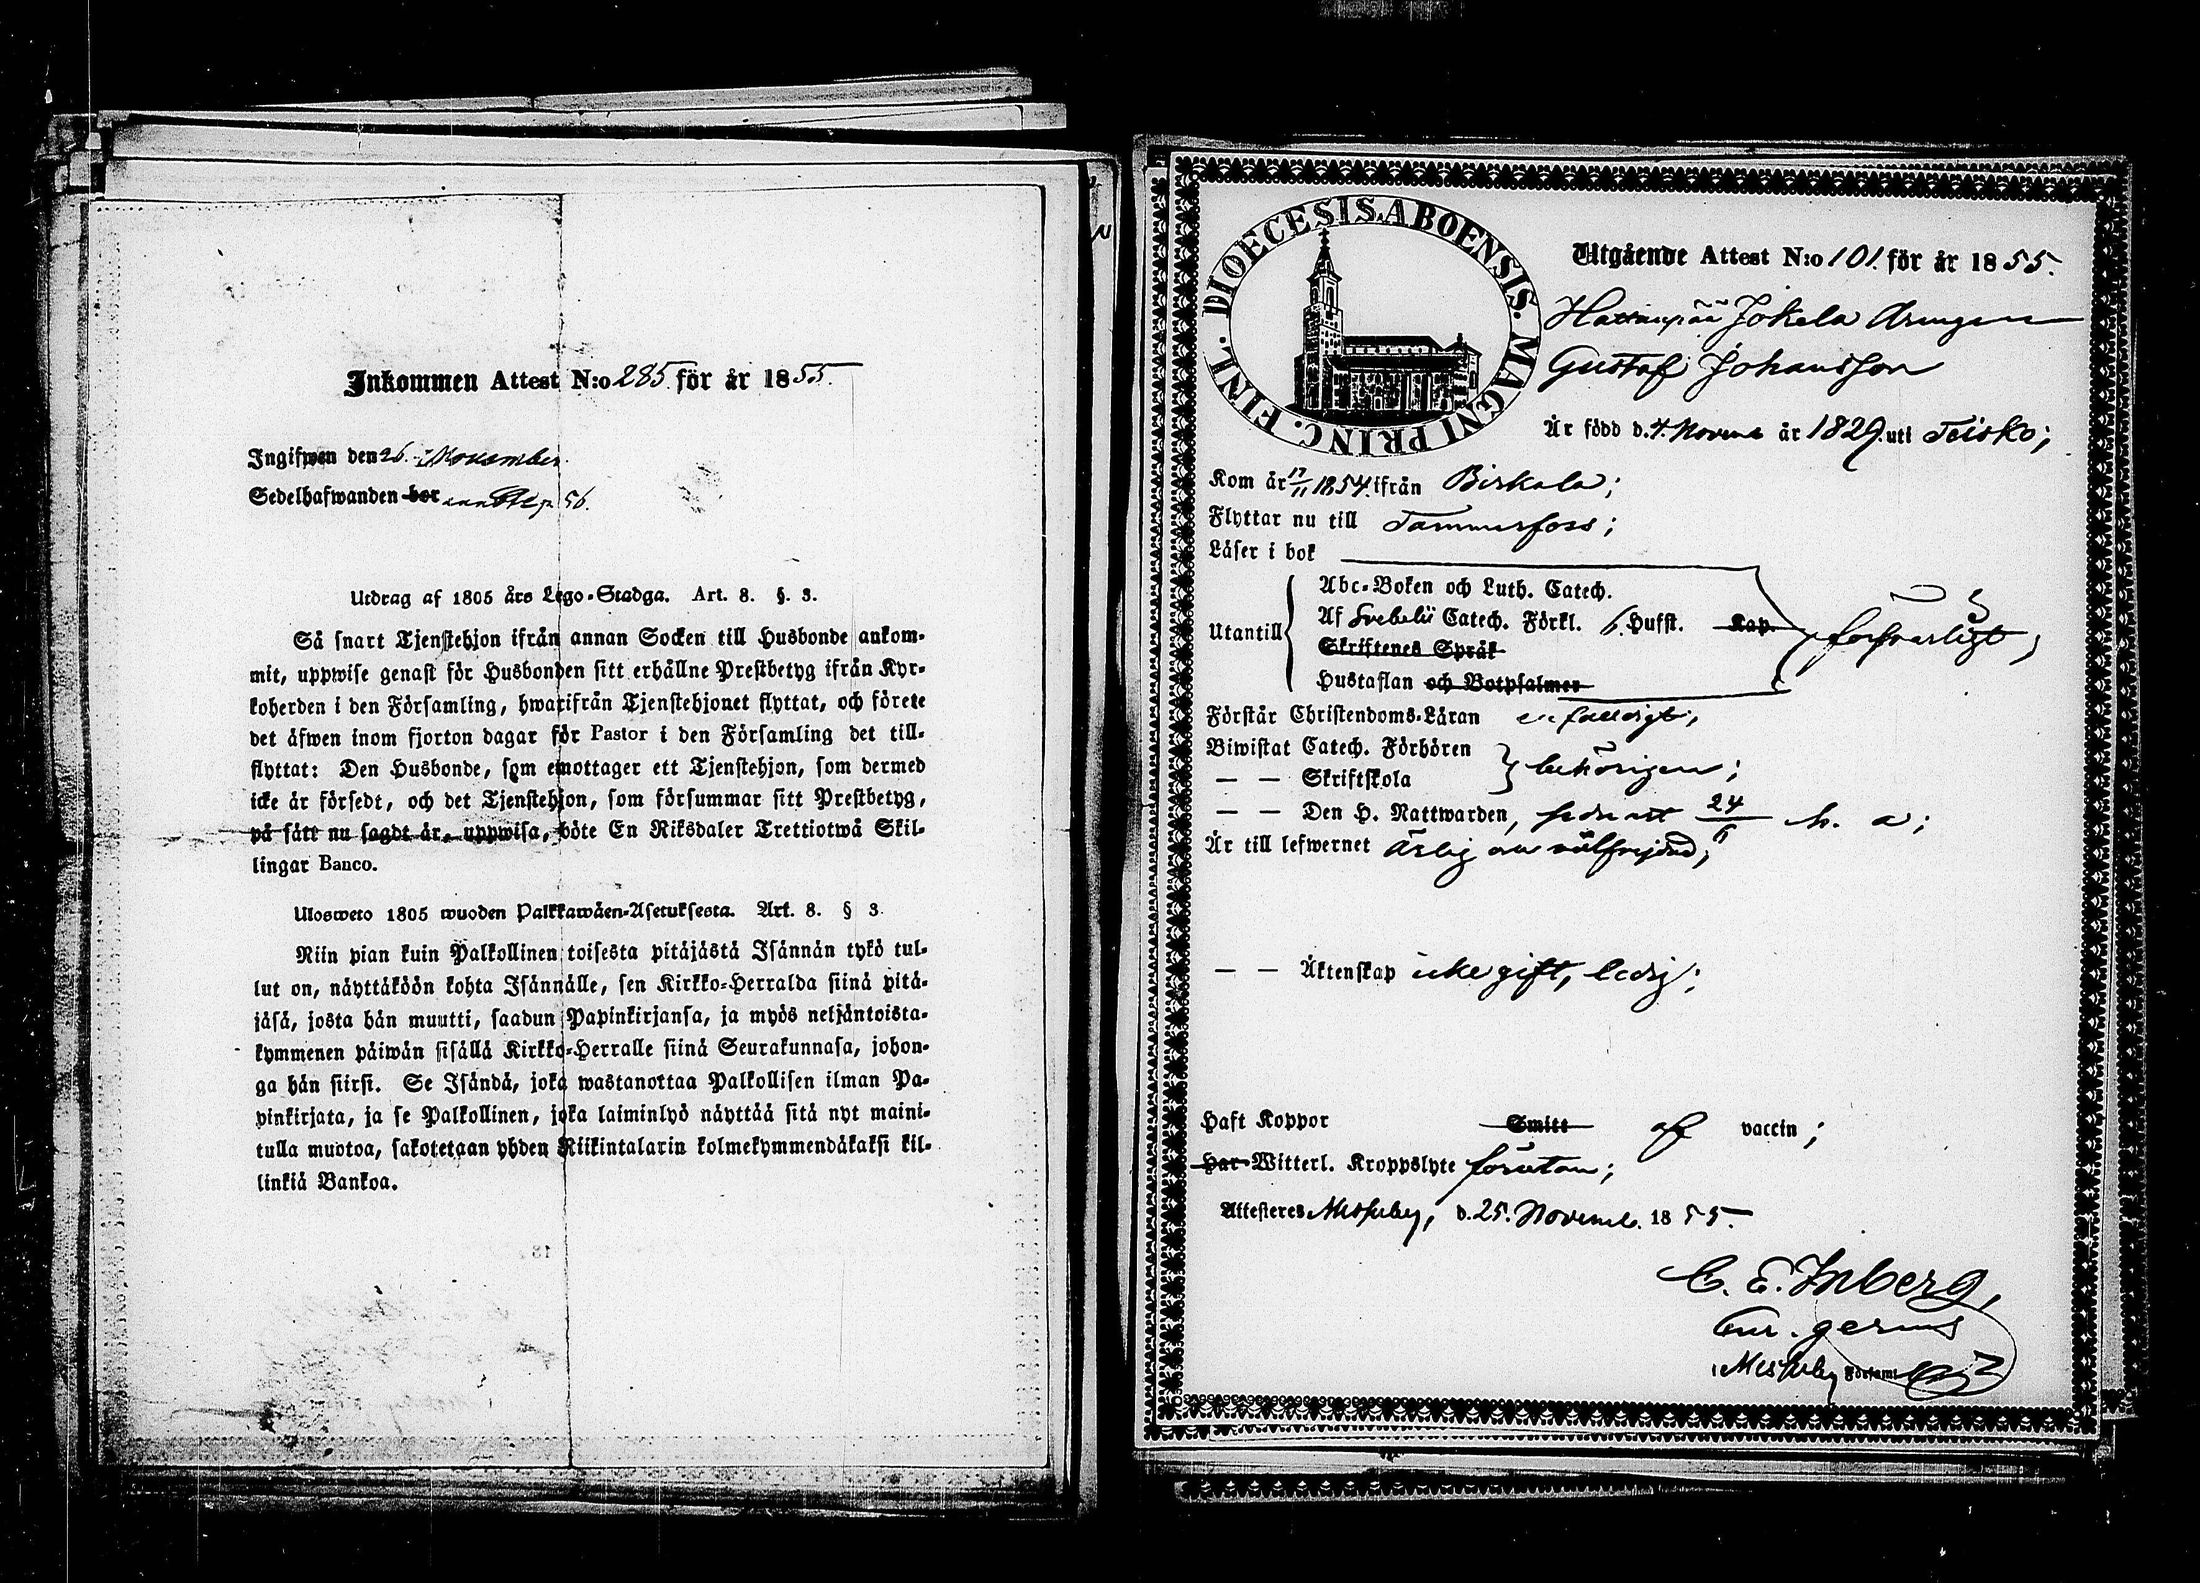 Inkommen Attest N:o 285. för år 1855.
Ingifwen den 26. November
Sedelhafwanden bor 56.
Utdrag af 1805 års Lego-Stadga. Art. 8. §. 3.
Så snart Tjenstehjon ifrån annan Socken till Husbonde ankom-
mit, uppwise genast för Husbonden sitt erhållne Prestbetyg ifrån Kyr-
koherden i den Församling, hwarifrån Tjenstehjonet flyttat, och förete
det äfwen inom fjorton dagar för Pastor i den Församling det till-
flyttat: Den Husbonde, som emottager ett Tjenstehjon, som dermed
icke är försedt, och det Tjenstehjon, som försummar sitt Prestbetyg,
på sätt nu sagdt är, uppwisa, böte En Riksdaler Trettiotwå Skil-
lingar Banco.
Ulosweto 1805 wuoden Palkkawäen-Asetuksesta. Art. 8. § 3.
Niin pian kuin Palkollinen toisesta pitäjästä Isännän tykö tul-
lut on, näyttäköön kohta Isännälle, sen Kirkko-Herralda siinä pitä-
jäsä, josta hän muutti, saadun Papinkirjansa, ja myös neljäntoista-
kymmenen päiwän sisällä Kirkko-Herralle siinä Seurakunnasa, johon-
ga hän siirsi. Se Isändä, joka wastanottaa Palkollisen ilman Pa-
pinkirjata, ja se Palkollinen, joka laiminlyö näyttää sitä nyt maini-
tulla muotoa, sakotetaan yhden Riikintalarin kolmekymmendäkaksi kil-
linkiä Bankoa.
DIOECESIS. ABOENSIS. MAGNI PRINC. FINL.
Utgående Attest N:o 101. för år 1855.
Hattanpää Jokela Drängen
Gustaf Johansson
Är född d. 4. Novemb år 1829. uti Teisko;
Kom år 17/11 1854. ifrån Birkala;
Flyttar nu till Tammerfors;
Läser i bok
Utantill
Abc-Boken och Luth. Catech.
Af Svebelii Catech. Förkl. 6. Hufst. Kap.
Skriftenes Språk
Hustaflan och Botpsalmer
försvarligt;
Förstår Christendoms-Läran enfaldigt;
Biwistat Catech. Förhören
— — Skriftskola
behörigen;
— — Den H. Nattwarden, sednast 24/6 h. a;
Är till lefwernet ärlig och välfrejdad;
— — Äktenskap icke gift, ledig;
Haft Koppor Smitt af vaccin;
Har Witterl. Kroppslyte förutan;
Attesteras Messuby, d. 25. Novemb. 1855.
C. E. Inberg,
Cur. gerens
i Messuby Församl